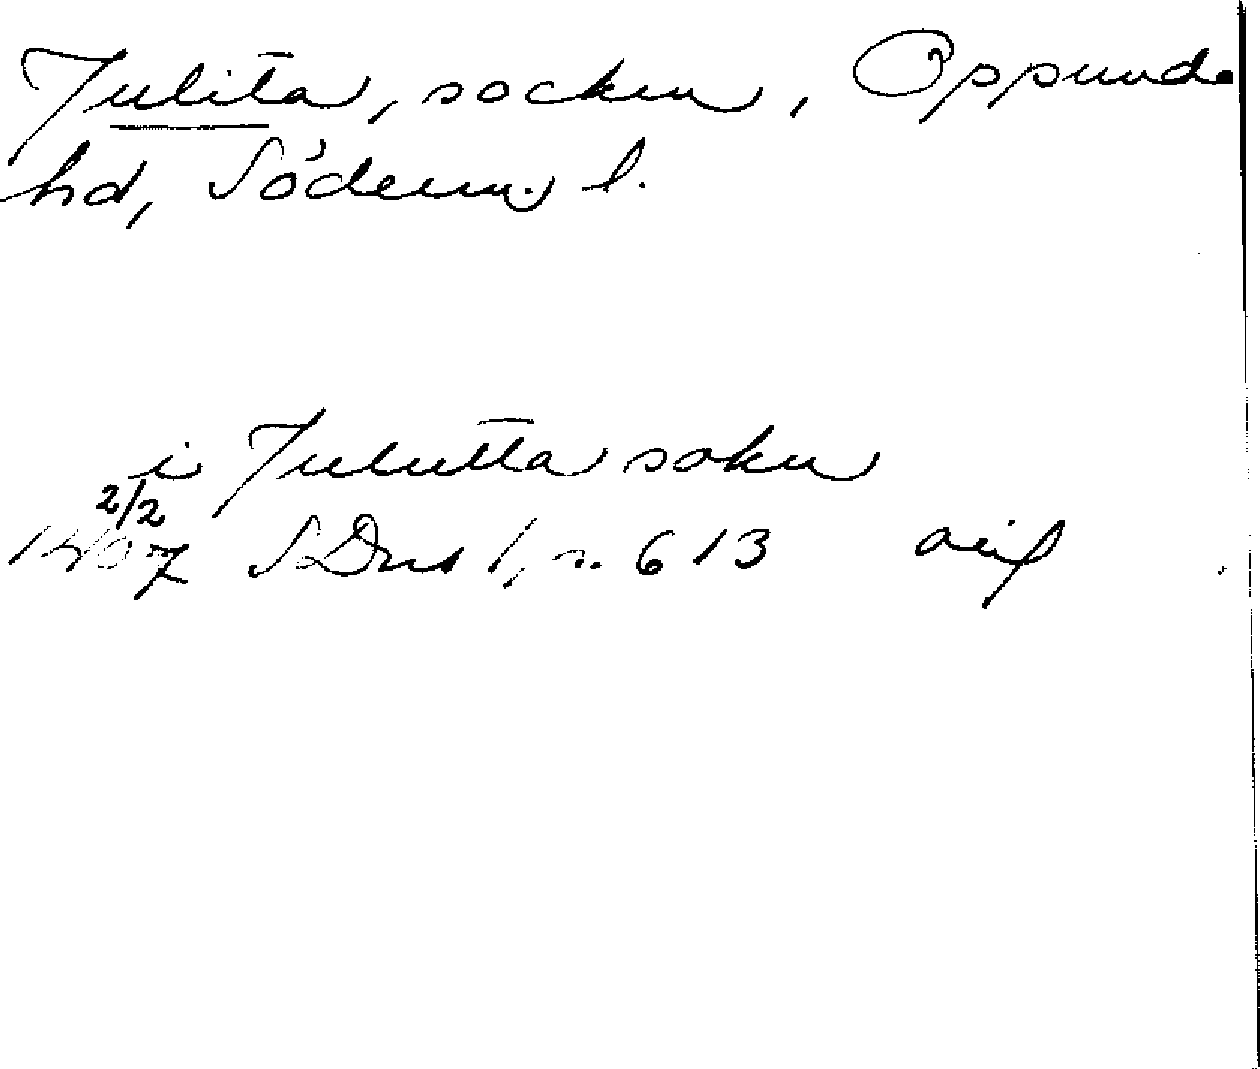 Julita, socken, Oppunda
hd, Söderm. l.
i Julutta sokn
2/2
1407 SDns 1, n. 613 avs